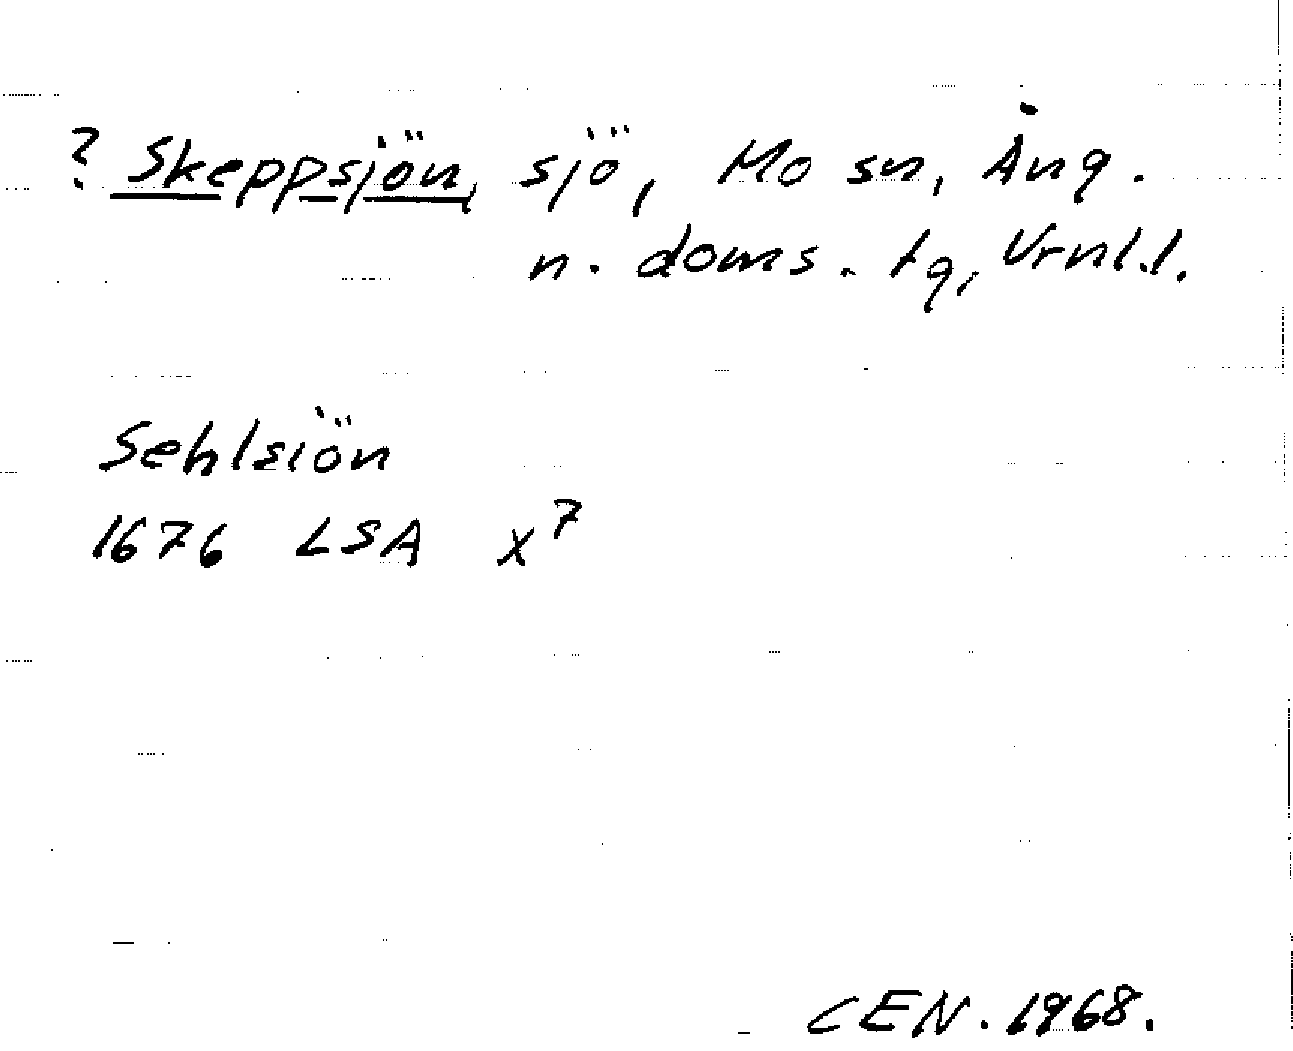 ? Skeppsjön, sjö, Mo sn, Ång.
n. doms. tg, Vrnl.l.
Sehlsiön
1676 LSA X7
CEN. 1968.